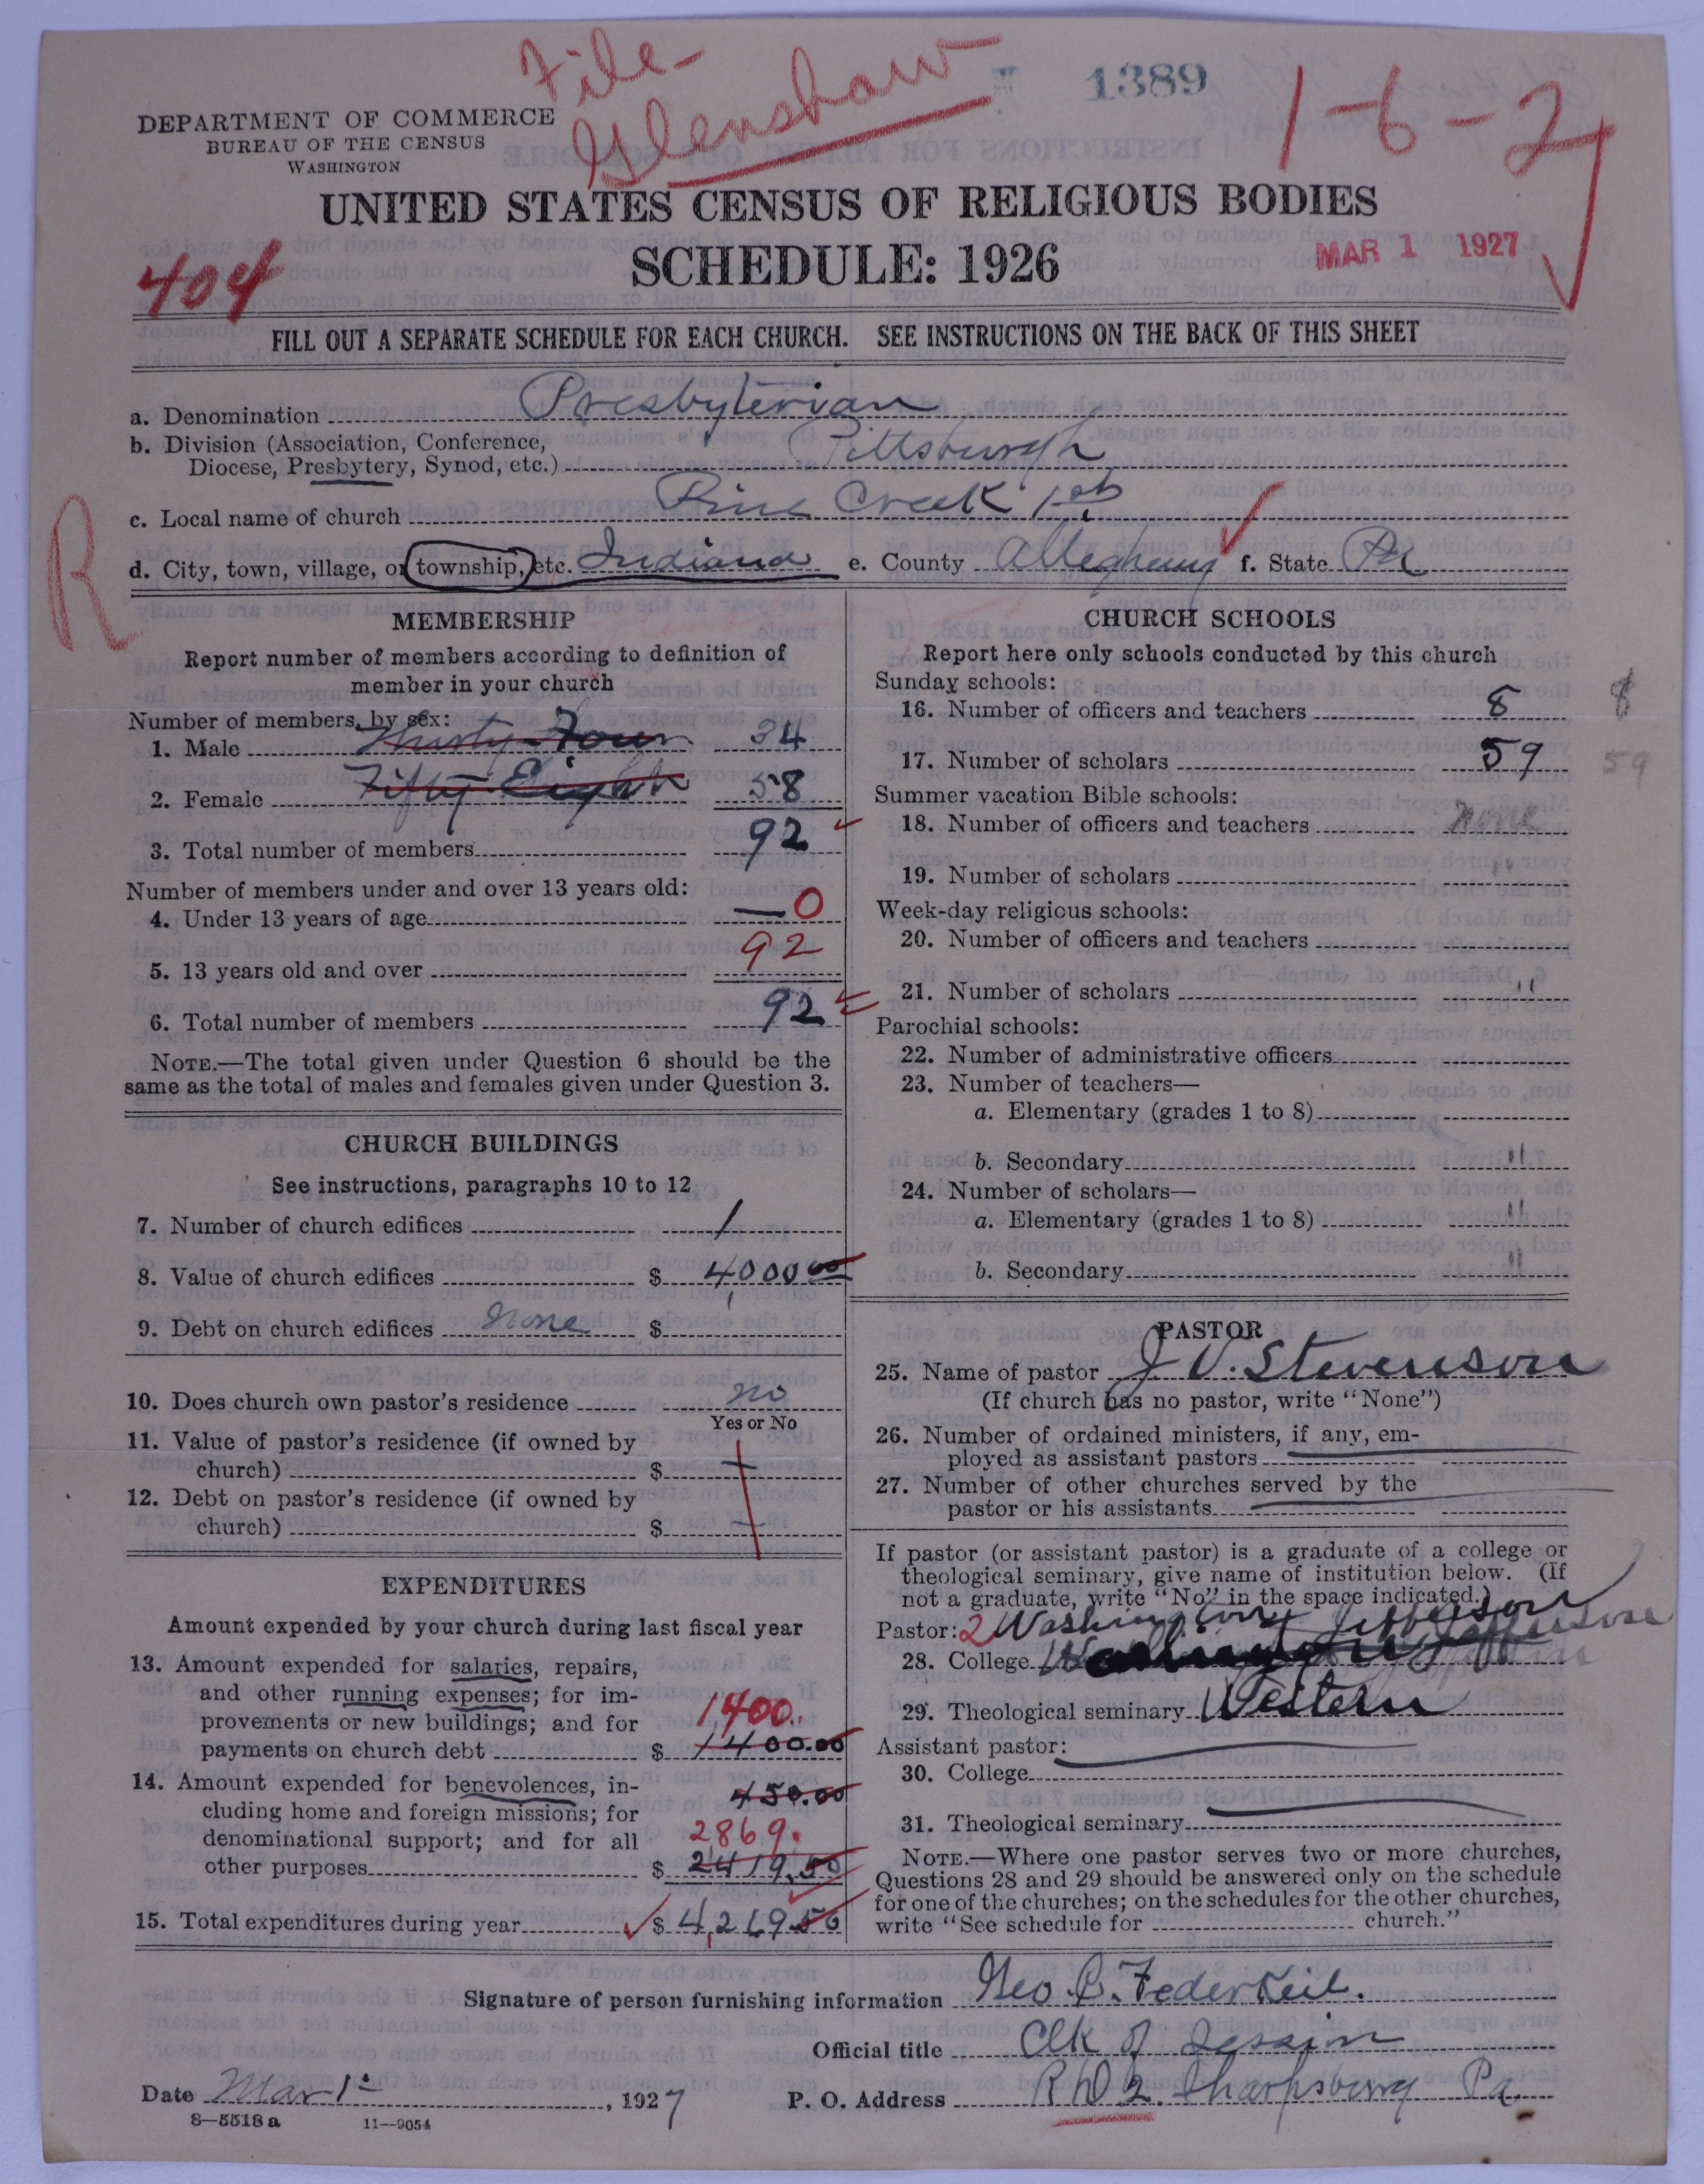 File-
Glenshaw
1389
1-6-2
DEPARTMENT OF COMMERCE
BUREAU OF THE CENSUS
WASHINGTON
UNITED STATES CENSUS OF RELIGIOUS BODIES
SCHEDULE: 1926
MAR 1 1927
404
FILL OUT A SEPARATE SCHEDULE FOR EACH CHURCH. SEE INSTRUCTIONS ON THE BACK OF THIS SHEET
a. Denomination Presbyterian
b. Division (Association, Conference,
Diocese, Presbytery, Synod, etc.) Pittsburgh
c. Local name of church Pine Creek 1st
R
d. City, town, village, or township, etc. Indiana e. County Allegheny f. State Pa
MEMBERSHIP
Report number of members according to definition of
member in your church
Number of members, by sex:
1. Male Thirty Four 34
2. Female Fifty Eight 58
3. Total number of members 92
Number of members under and over 13 years old:
4. Under 13 years of age — 0
5. 13 years old and over 92
6. Total number of members 92
NOTE.—The total given under Question 6 should be the
same as the total of males and females given under Question 3.
CHURCH BUILDINGS
See instructions, paragraphs 10 to 12
7. Number of church edifices 1
8. Value of church edifices $ 4000 00
9. Debt on church edifices None $
10. Does church own pastor's residence no
Yes or No
11. Value of pastor's residence (if owned by
church) $
12. Debt on pastor's residence (if owned by
church) $
EXPENDITURES
Amount expended by your church during last fiscal year
13. Amount expended for salaries, repairs,
and other running expenses; for im-
provements or new buildings; and for 1400.
payments on church debt $ 1400.00
14. Amount expended for benevolences, in- 450.00
cluding home and foreign missions; for
denominational support; and for all 2869.
other purposes $ 2419.50
15. Total expenditures during year $ 4,269.50
CHURCH SCHOOLS
Report here only schools conducted by this church
Sunday schools:
16. Number of officers and teachers 8 8
17. Number of scholars 59 59
Summer vacation Bible schools:
18. Number of officers and teachers None
19. Number of scholars "
Week-day religious schools:
20. Number of officers and teachers
21. Number of scholars "
Parochial schools:
22. Number of administrative officers
23. Number of teachers—
a. Elementary (grades 1 to 8)
b. Secondary "
24. Number of scholars—
a. Elementary (grades 1 to 8) "
b. Secondary "
PASTOR
25. Name of pastor J. V. Stevenson
(If church has no pastor, write "None")
26. Number of ordained ministers, if any, em-
ployed as assistant pastors
27. Number of other churches served by the
pastor or his assistants
If pastor (or assistant pastor) is a graduate of a college or
theological seminary, give name of institution below. (If
not a graduate, write "No" in the space indicated.)
Pastor: 2 Washington & Jefferson
28. College
29. Theological seminary Western
Assistant pastor:
30. College
31. Theological seminary
NOTE.—Where one pastor serves two or more churches,
Questions 28 and 29 should be answered only on the schedule
for one of the churches; on the schedules for the other churches,
write "See schedule for church."
Signature of person furnishing information Geo. C. Federkeil.
Official title Clk of Session
Date Mar 1st, 1927 P. O. Address R D 2. Sharpsburg Pa.
8—5518 a 11—9054